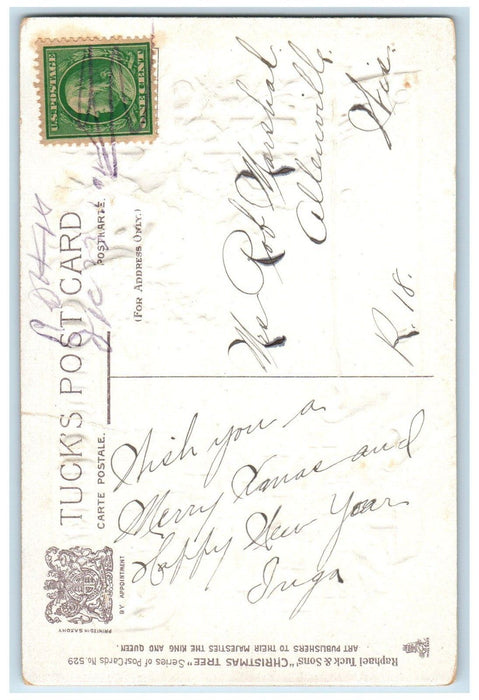 TUCK'S POST CARD
CARTE POSTALE.
POSTKARTE.
(FOR ADDRESS ONLY.)
BY APPOINTMENT
PRINTED IN SAXONY
U.S. POSTAGE
ONE CENT
Wish you a
Merry Xmas and
Happy New Year
Inga
Mrs Rob Marshal
Allenville
Wis.
R. 18.
Raphael Tuck & Sons' "CHRISTMAS TREE" Series of PostCards No. 529
ART PUBLISHERS TO THEIR MAJESTIES THE KING AND QUEEN